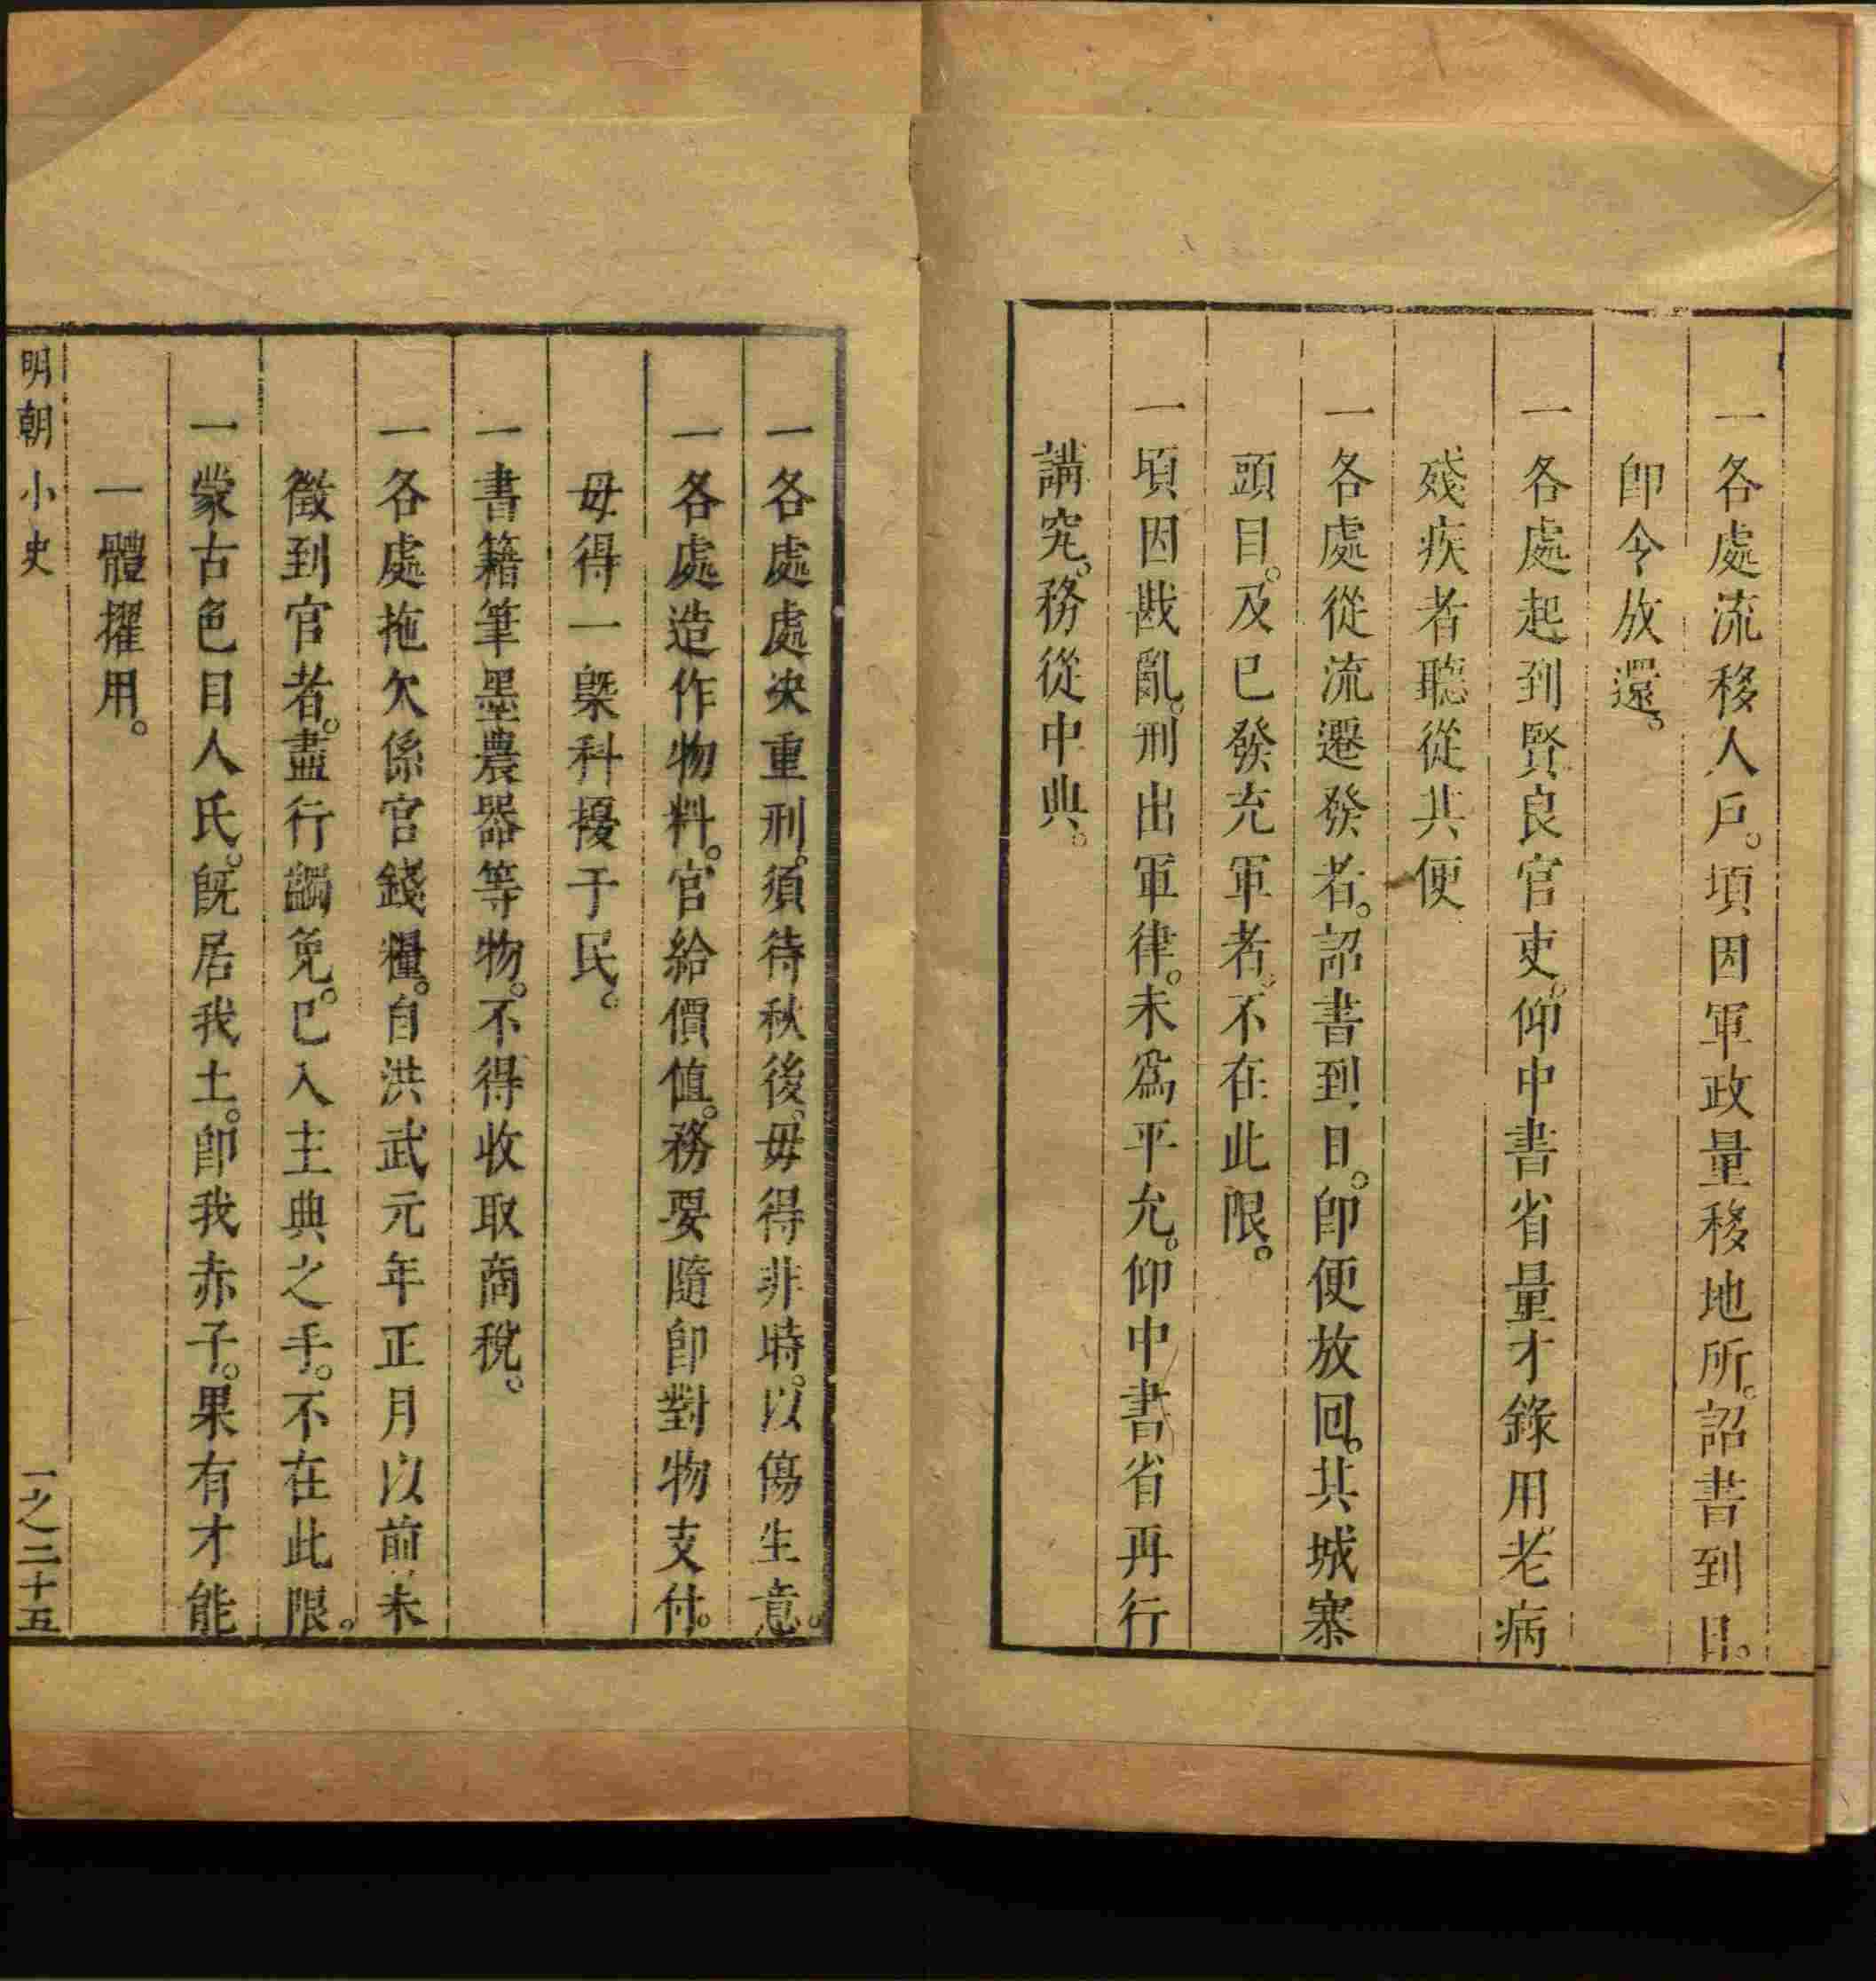 一各處流移人戶。頃因軍政量移地所。詔書到日。
卽令放還。
一各處起到賢良官吏。仰中書省量才錄用。老病
殘疾者聽從其便
一各處從流遷發者。詔書到日。卽便放回。其城寨
頭目。及已發充軍者。不在此限。
一頃因戡亂。刑出軍律。未爲平允。仰中書省再行
講究。務從中典。
一各處處決重刑。須待秋後。毋得非時。以傷生意。
一各處造作物料。官給價值。務要隨卽對物支付。
毋得一槩科擾于民。
一書籍筆墨農器等物。不得收取商稅。
一各處拖欠係官錢糧。自洪武元年正月以前未
徵到官者。盡行蠲免。已入主典之手。不在此限。
一蒙古色目人氏。旣居我土。卽我赤子。果有才能
一體擢用。
明朝小史 一之二十五